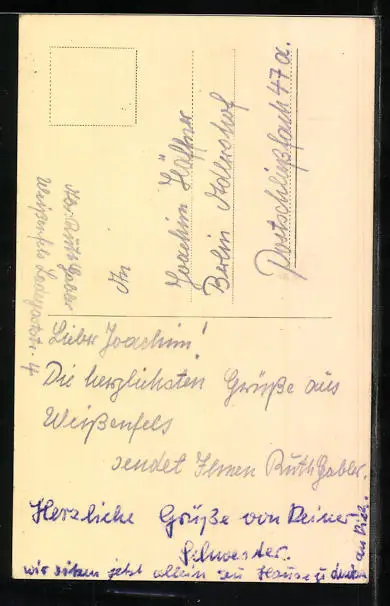 An
Joachim Häffner
Berlin Adlershof
Postschließfach 47 a.
Abs. Ruth Gabler
Weißenfels
4
Lieber Joachim!
Die herzlichsten Grüße aus
Weißenfels
sendet Ihnen Ruth Gabler.
Herzliche Grüße von Deiner
Schwester.
wir sitzen jetzt allein zu Hause u. denken
an Dich.